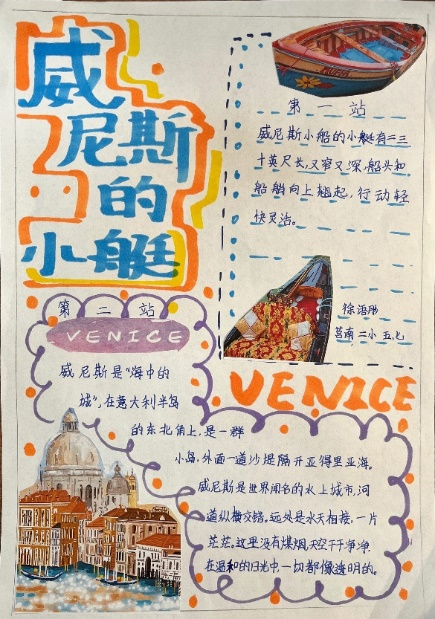 威
尼斯
的
小艇
第一站
威尼斯小船的小艇有二三
十英尺长,又窄又深,船头和
船艄向上翘起,行动轻
快灵活。
莒南二小 五.七
第二站
VENICE
VENICE
威尼斯是"海中的
城",在意大利半岛
的东北角上,是一群
小岛,外面一道沙堤隔开亚得里亚海。
威尼斯是世界闻名的水上城市,河
道纵横交错。远处是水天相接,一片
茫茫。这里没有煤烟,天空干干净净,
在温和的日光中一切都像透明的。